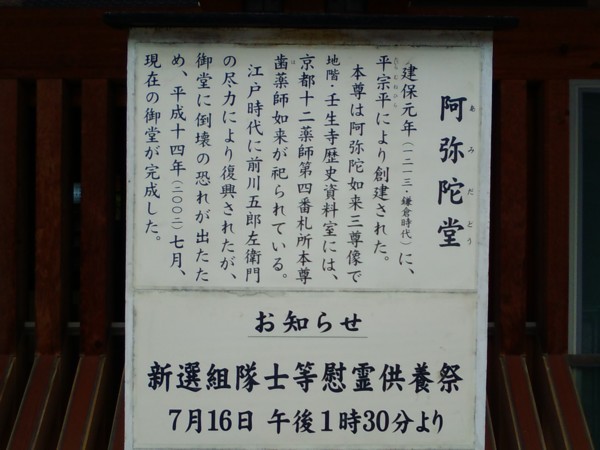 阿弥陀堂
あみだどう
建保元年(一二一三・鎌倉時代)に、
平宗平により創建された。
本尊は阿弥陀如来三尊像で
地階・壬生寺歴史資料室には、
京都十二薬師第四番札所本尊
歯薬師如来が祀られている。
江戸時代に前川五郎左衛門
の尽力により復興されたが、
御堂に倒壊の恐れが出たた
め、平成十四年(二〇〇二)七月、
現在の御堂が完成した。
お知らせ
新選組隊士等慰霊供養祭
7月16日 午後1時30分より